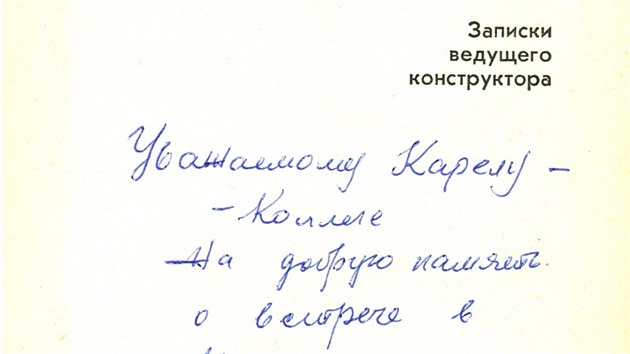 Записки
ведущего
конструктора
Уважаемому Карелу –
– Коллеге
На добрую память
о встрече в